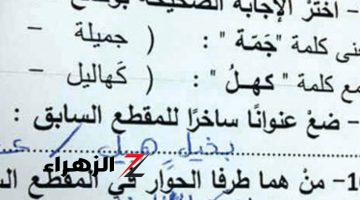 - اختر الإجابة الصحيحة بوضع
نى كلمة " جَمّة " : ( جميلة -
مع كلمة " كهلُ " : ( كَهاليل -
- ضعْ عنوانًا ساخرًا للمقطع السابق :
بخيل
الزهراء
- منْ هما طرفا الحوار في المقطع الس